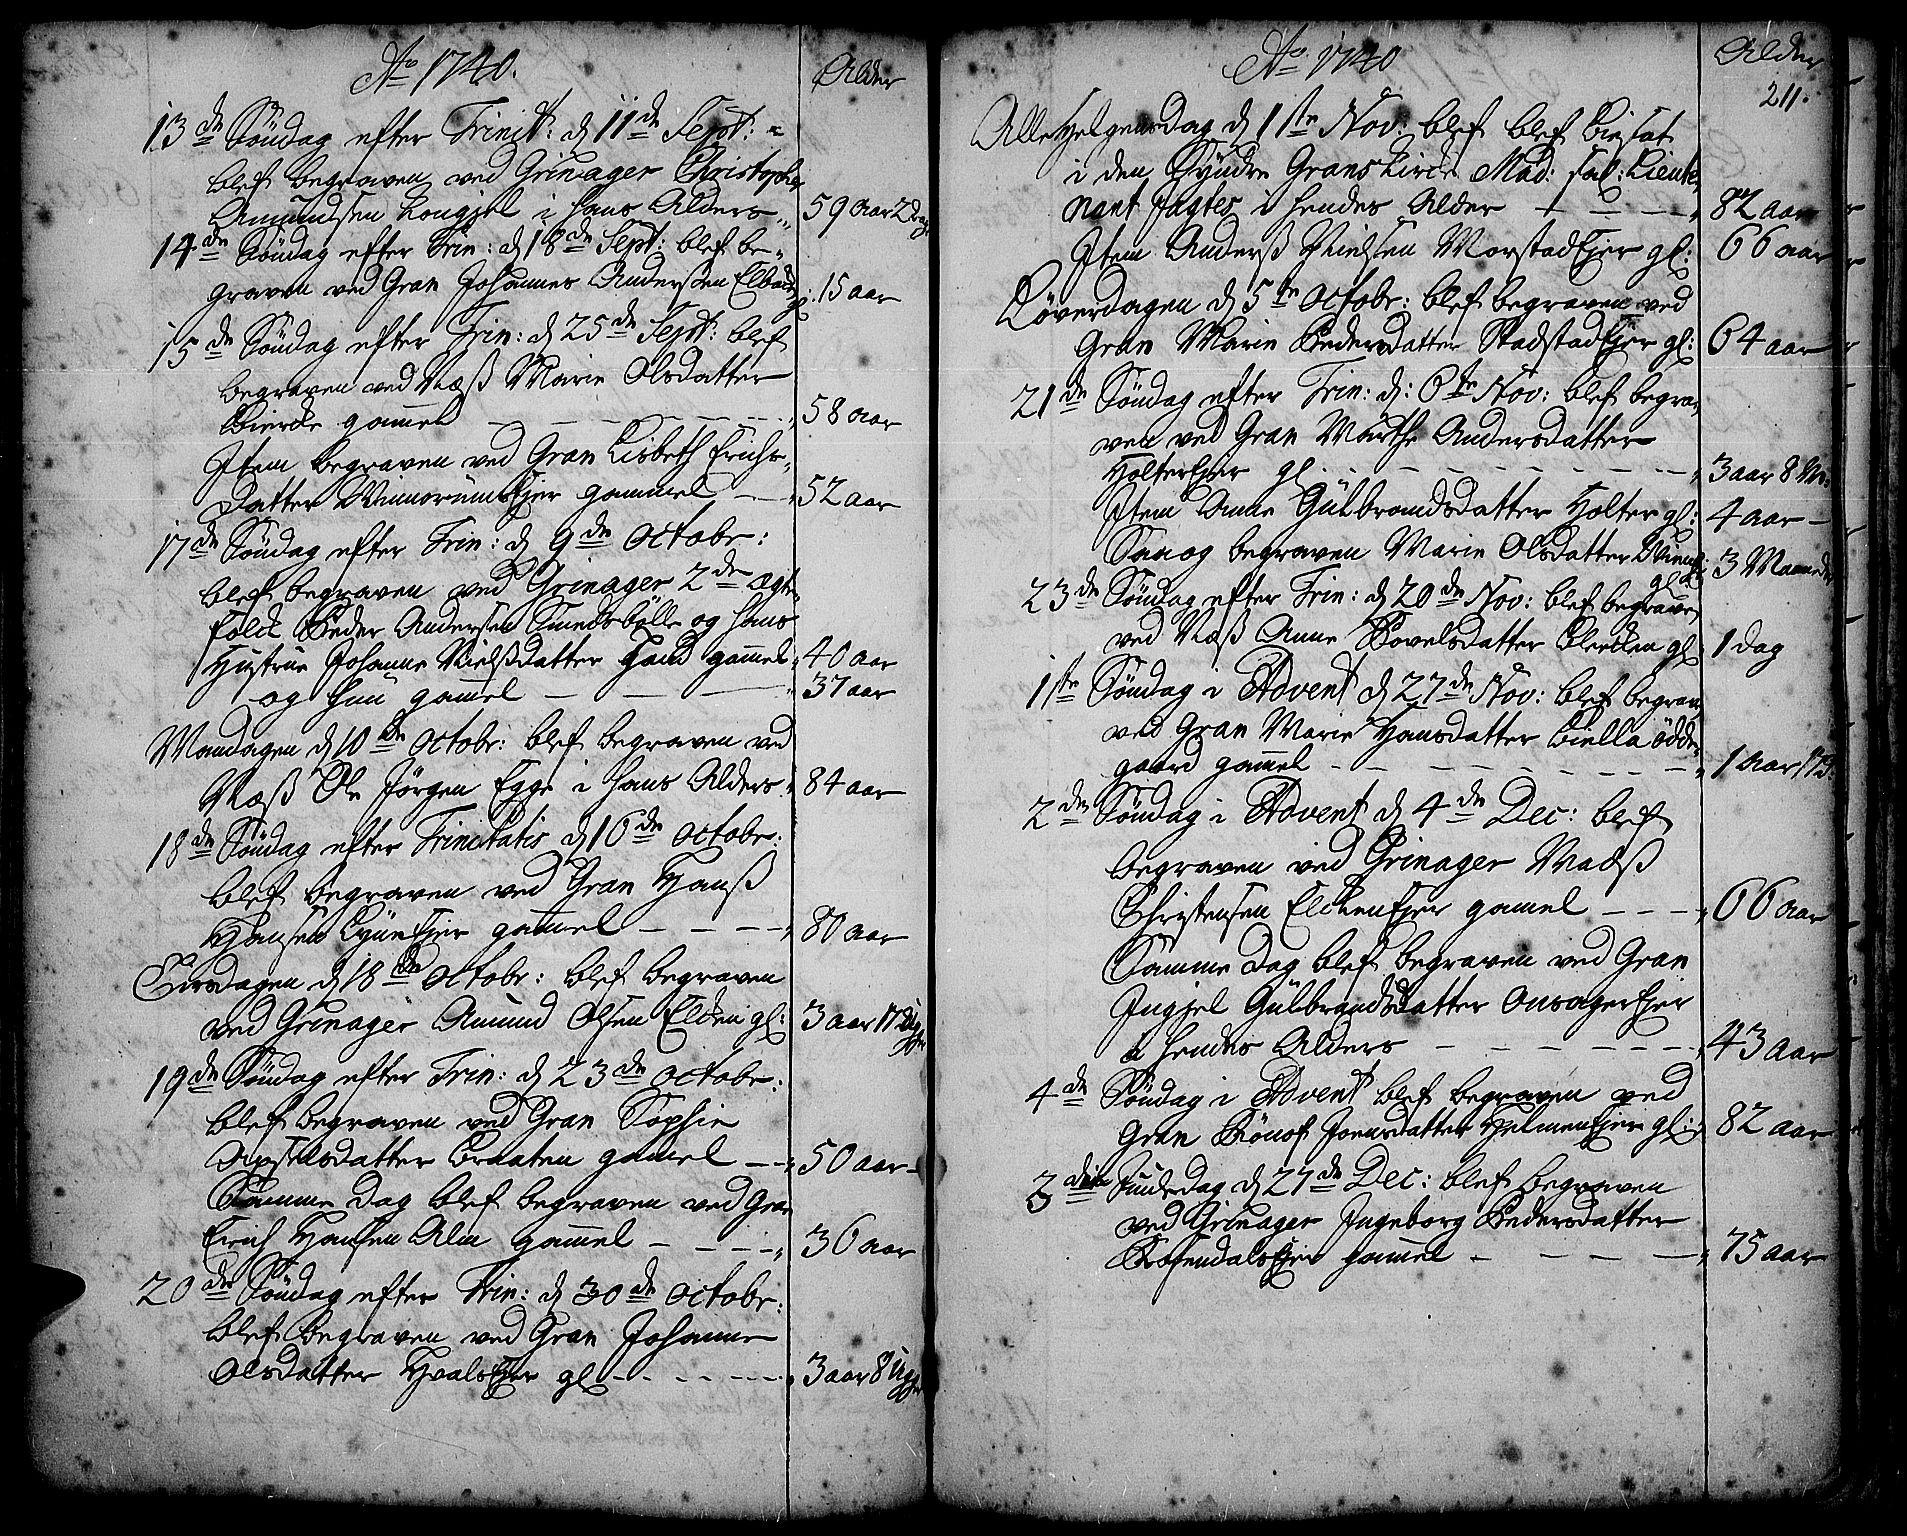 Ao 1740.
Alder
13de Søndag efter Trinit: d 11de Sept:
blef begraven ved Grinager Christopher
Amundsen Longjel i hans Alders 59 aar 2 Dage
14de Søndag efter Trin: d 18de Sept: blef be-
graven ved Gran Johannes Anderssen 15 aar
15de Søndag efter Trin: d 25de Sept: blef
begraven ved Næss Marie Olsdatter
Bierde gammel 58 aar
Item begraven ved Gran Lisbeth Erichs-
datter Winnorumsejer gammel 52 aar
17de Søndag efter Trin: d 9de Octobr:
blef begraven ved Grinager 2de ægte
folck Peder Andersen Smedsbølle og hans
Hustrue Johanne Nielsdatter Hand gamel 40 aar
og hun gamel 37 aar
Mandagen d 10de Octobr: blef begraven ved
Næss Ole Jörgen Egge i hans Alders 84 aar
18de Søndag efter Trinitatis d 16de Octobr:
blef begraven ved Gran Hanss
Hansen gammel 80 aar
Tirsdagen d 18de Octobr: blef begraven
ved Grinager Amund Olsen Elden gl: 3 aar 11 Uger
19de Søndag efter Trin: d 23de Octobr:
blef begraven ved Gran Sophie
Axselsdatter Braaten gamel 50 aar
Samme Dag blef begraven ved Gran
Erich Hansen Alm gammel 36 aar
20de Søndag efter Trin: d 30de Octobr:
blef begraven ved Gran Johanne
Olsdatter Hvalsejer gl 3 aar 8 Uger
Ao 1740
Alder
211.
Alle Helgensdag d 1ste Nov: blef blef Biesat
i den Syndre Grans Kirche Mad: sal: Lieute-
nant Jagtes i hendes Alder 82 aar
Item Anderss Nielsen Morstadejer gl: 66 aar
Löverdagen d 5te Octobr: blef begraven ved
Gran Marie Pedersdatter Stadstadejer gl: 64 aar
21de Søndag efter Trin: d: 6te Nov: blef begra-
ven ved Gran Marthe Andersdatter
Holterejer gl. 3 aar 8 M:
Item Anne Gulbrandsdatter Holter gl: 4 aar
Saa og begraven Marie Olsdatter gl: 3 Maaneder
23de Søndag efter Trin: d 20de Nov: blef begraven
ved Næss Anne Povelsdatter Blecken gl 1 dag
1ste Søndag i Advent d 27de Nov: blef begraven
ved Gran Marie Hansdatter Biella Ødde-
gaard gammel 1 Aar
2de Søndag i Advent d 4de Dec: blef
begraven ved Grinager Madss
Christensen Elckenejer gamel 66 aar
Samme Dag blef begraven ved Gran
Ingjel Gulbrandsdatter Onsagerejer
i hendes Alders 43 aar
4de Søndag i Advent blef begraven ved
Gran Rönof Joensdatter Helmenejer gl: 82 aar
3die Juuledag d 27de Dec: blef begraven
ved Grinager Ingeborg Pedersdatter
Rosendalsejer gammel 75 aar